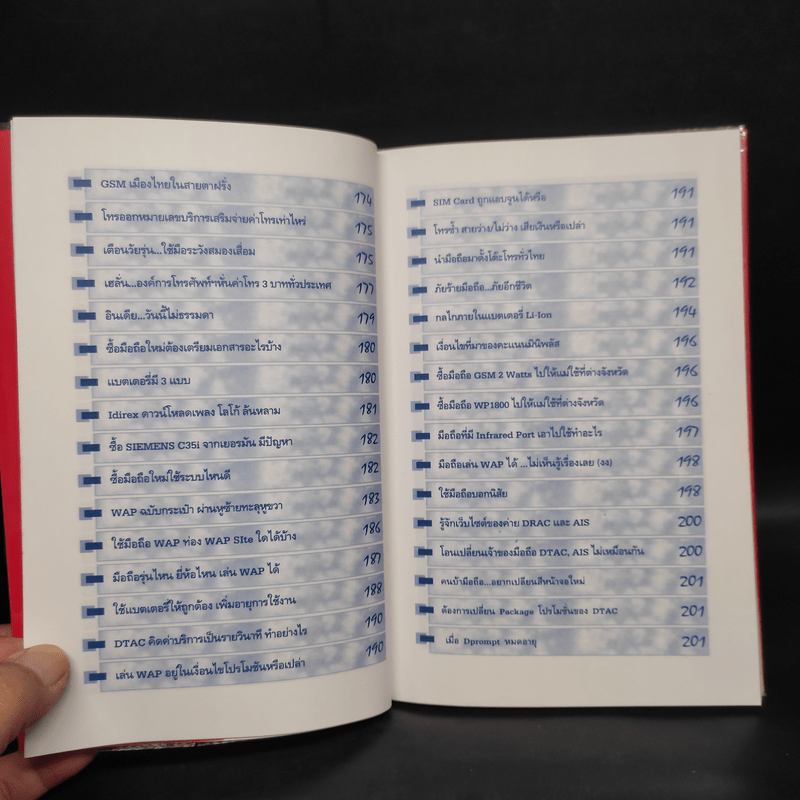 GSM เมืองไทยในสายตาฝรั่ง 174
โทรออกหมายเลขบริการเสริมจ่ายค่าโทรเท่าไหร่ 175
เตือนวัยรุ่น...ใช้มือระวังสมองเสื่อม 175
เฮลั่น...องค์การโทรศัพท์ฯหั่นค่าโทร 3 บาททั่วประเทศ 177
อินเดีย...วันนี้ไม่ธรรมดา 179
ซื้อมือถือใหม่ต้องเตรียมเอกสารอะไรบ้าง 180
แบตเตอรี่มี 3 แบบ 180
Idirex ดาวน์โหลดเพลง โลโก้ ล้นหลาม 181
ซื้อ SIEMENS C35i จากเยอรมัน มีปัญหา 182
ซื้อมือถือใหม่ใช้ระบบไหนดี 182
WAP ฉบับกระเป๋า ผ่านหูซ้ายทะลุหูขวา 183
ใช้มือถือ WAP ท่อง WAP SIte ใดได้บ้าง 186
มือถือรุ่นไหน ยี่ห้อไหน เล่น WAP ได้ 187
ใช้แบตเตอรี่ให้ถูกต้อง เพิ่มอายุการใช้งาน 188
DTAC คิดค่าบริการเป็นรายวินาที ทำอย่างไร 190
เล่น WAP อยู่ในเงื่อนไขโปรโมชันหรือเปล่า 190
SIM Card ถูกแอบจูนได้หรือ 191
โทรซ้ำ สายว่าง/ไม่ว่าง เสียเงินหรือเปล่า 191
นำมือถือมาตั้งโต๊ะโทรทั่วไทย 191
ภัยร้ายมือถือ...ภัยอีกชีวิต 192
กลไกภายในแบตเตอรี่ Li-Ion 194
เงื่อนไขที่มาของคะแนนมินิพลัส 196
ซื้อมือถือ GSM 2 Watts ไปให้แม่ใช้ที่ต่างจังหวัด 196
ซื้อมือถือ WP1800 ไปให้แม่ใช้ที่ต่างจังหวัด 196
มือถือที่มี Infrared Port เอาไปใช้ทำอะไร 197
มือถือเล่น WAP ได้ ...ไม่เห็นรู้เรื่องเลย (งง) 198
ใช้มือถือบอกนิสัย 198
รู้จักเว็บไซต์ของค่าย DRAC และ AIS 200
โอนเปลี่ยนเจ้าของมือถือ DTAC, AIS ไม่เหมือนกัน 200
คนบ้ามือถือ...อยากเปลี่ยนสีหน้าจอใหม่ 201
ต้องการเปลี่ยน Package โปรโมชั่นของ DTAC 201
เมื่อ Dprompt หมดอายุ 201